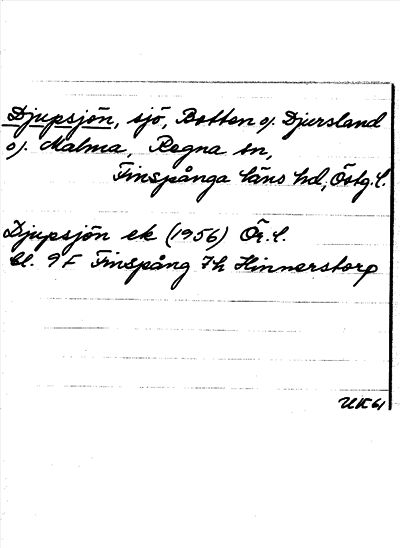 Djupsjön, sjö, Botten o. Djursland
o. Malma, Regna sn,
Finspånga läns hd, Östg. l.
Djupsjön ek (1956) Ör. l.
bl. 9F Finspång 7h Hinnerstorp
UK61